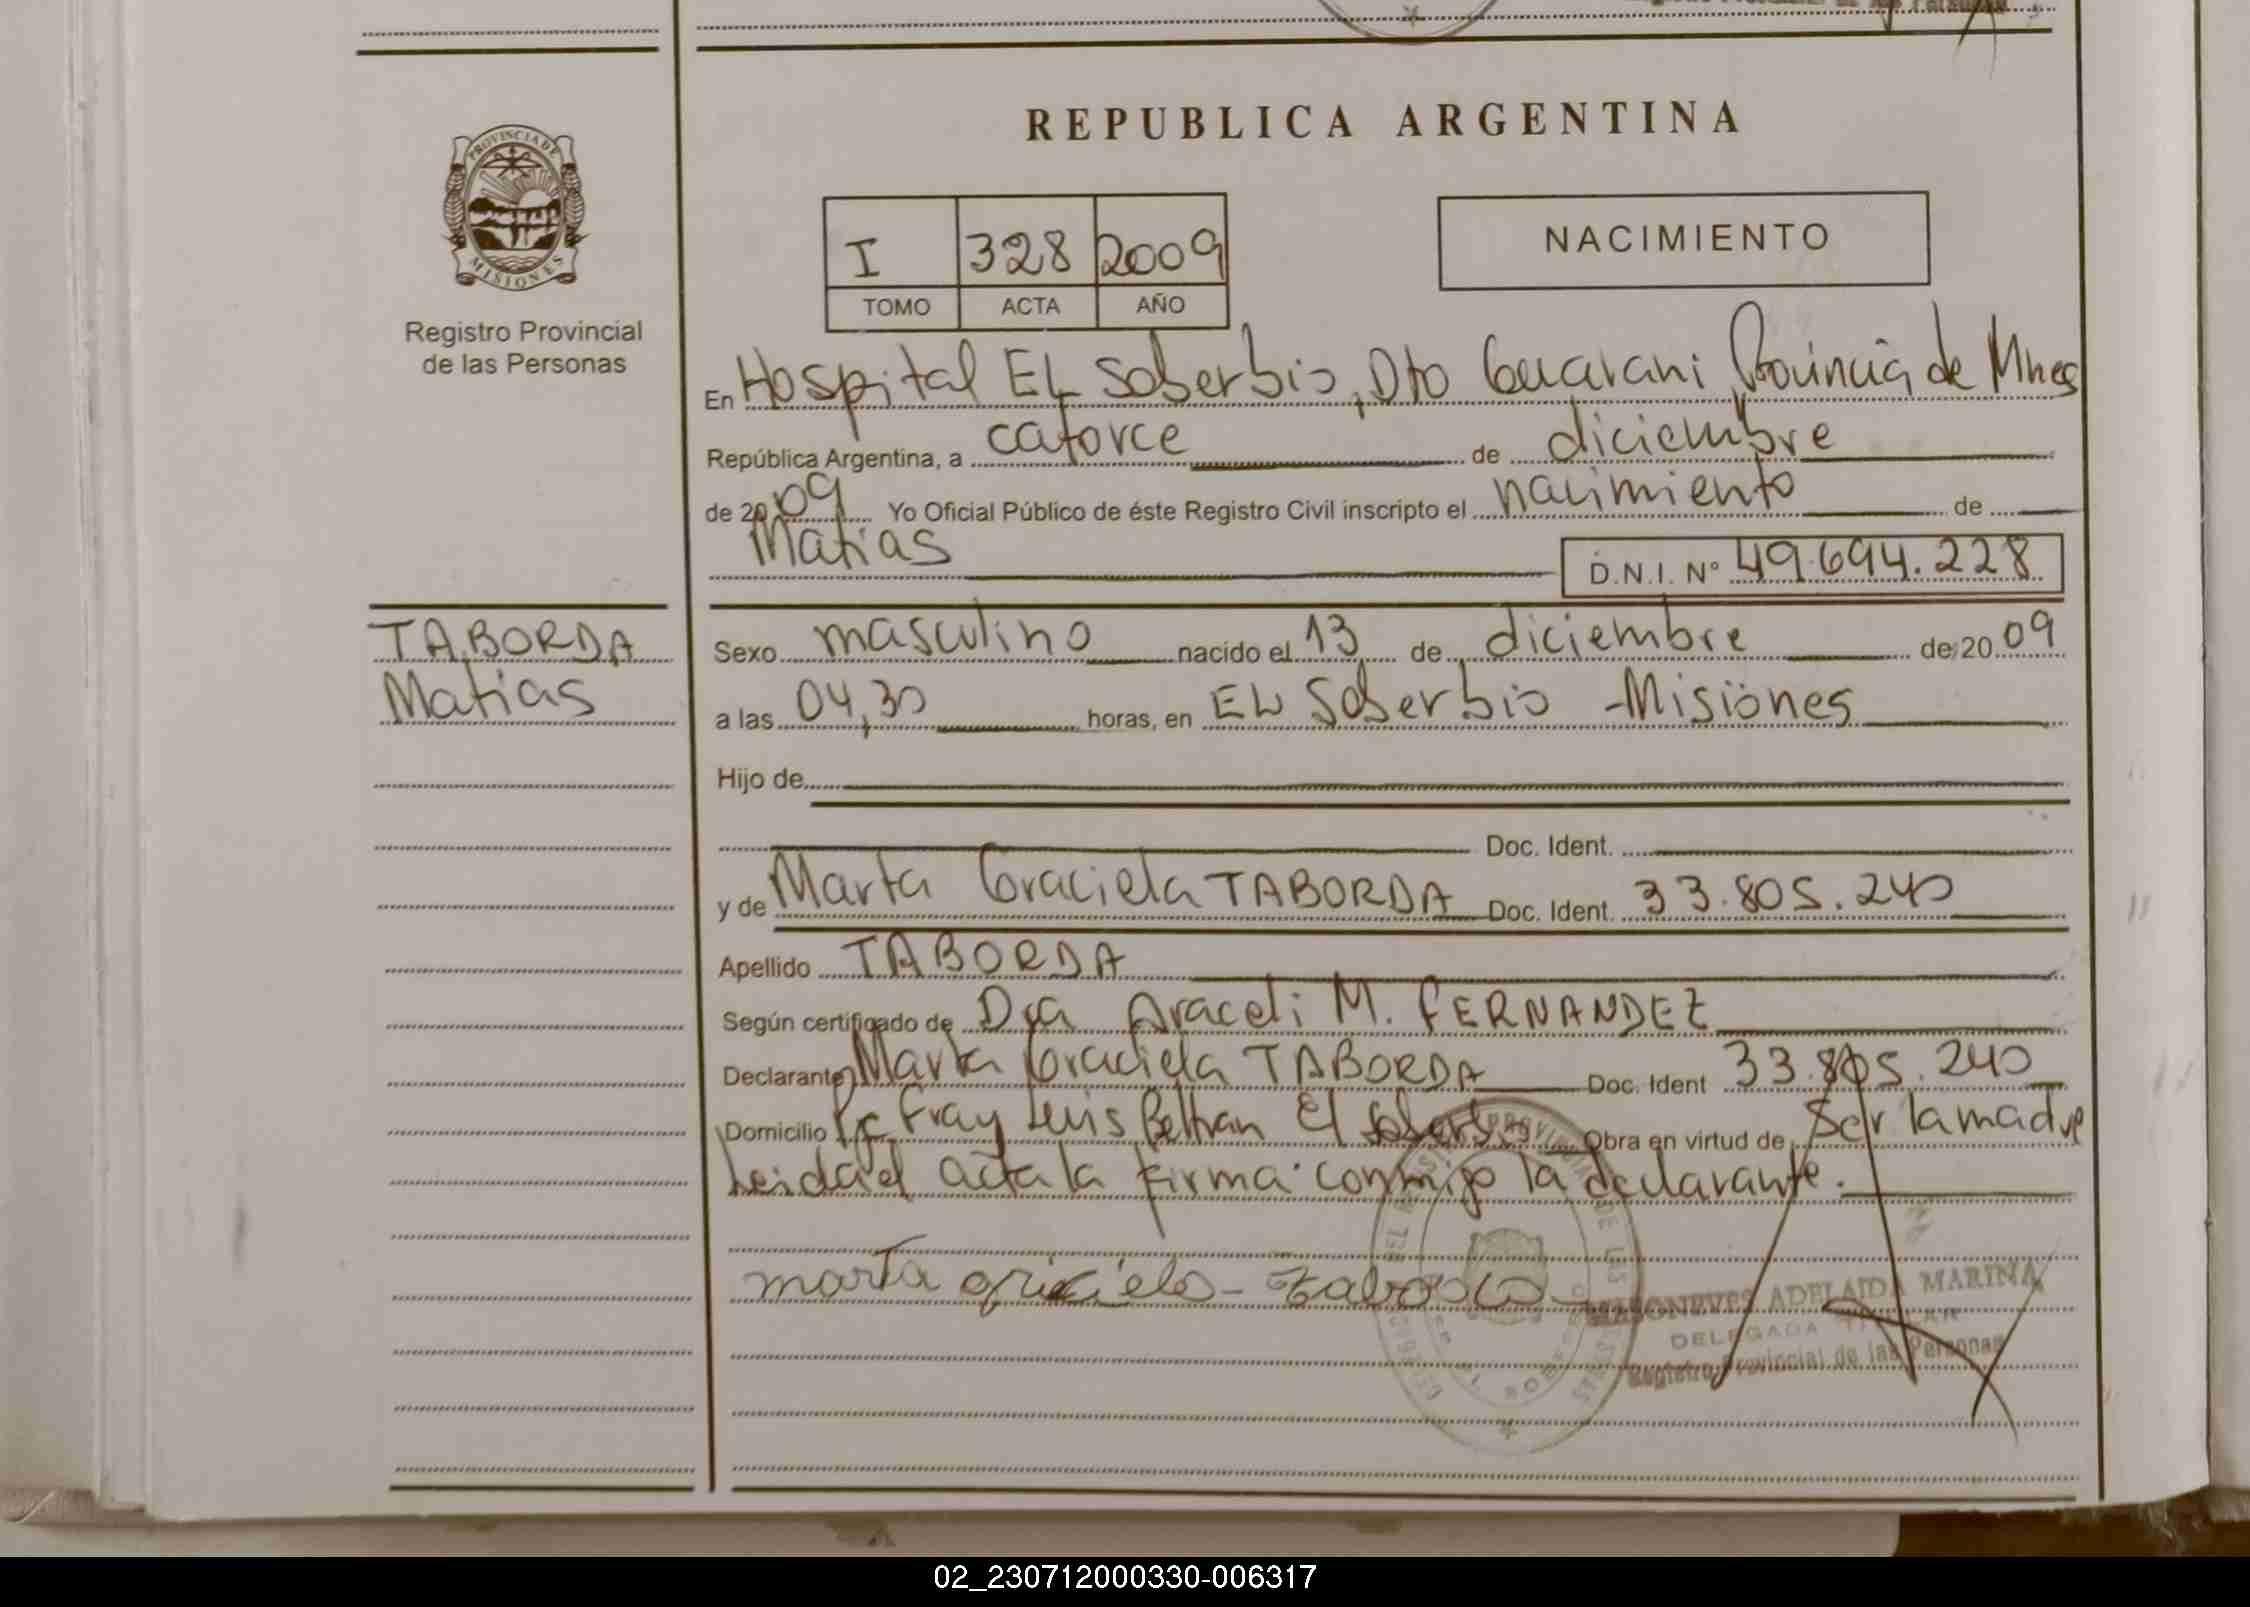 REPUBLICA ARGENTINA
PROVINCIA DE
MISIONES
Registro Provincial
de las Personas
I 328 2009
TOMO ACTA AÑO
NACIMIENTO
En Hospital EL Soberbio, Dto Guarani Provincia de Mnes
República Argentina, a catorce de diciembre
de 2009 Yo Oficial Público de éste Registro Civil inscripto el nacimiento de
Matias D.N.I. Nº 49.694.228
TABORDA
Matias
Sexo masculino nacido el 13 de diciembre de 20 09
a las 04,30 horas, en EL Soberbio - Misiones
Hijo de
Doc. Ident.
y de Marta Graciela TABORDA Doc. Ident. 33.805.240
Apellido TABORDA
Según certificado de Dra Araceli M. FERNANDEZ
Declarante Marta Graciela TABORDA Doc. Ident 33.805.240
Domicilio Pje Fray Luis Beltran El Soberb Obra en virtud de Ser la madre
Leida el acta la firma conmigo la declarante.
marta griciela - taborda -
ADELAIDA MARINA
DELEGADA TITULAR
Registro Provincial de las Personas
02_230712000330-006317